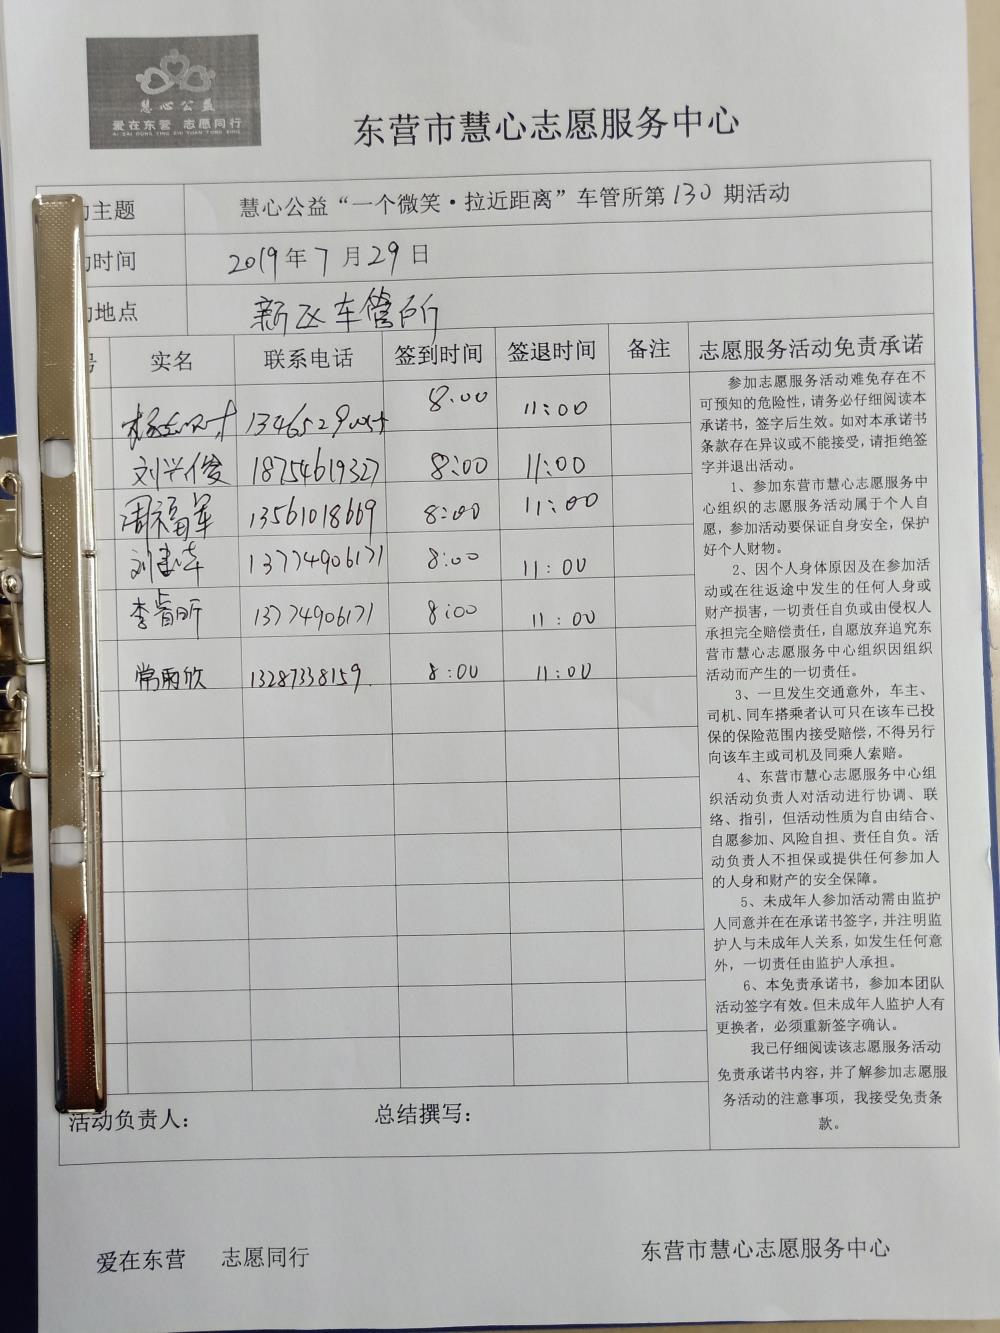 慧心公益
爱在东营 志愿同行
AI ZAI DONG YING ZHI YUAN TONG XING
东营市慧心志愿服务中心
主题 慧心公益“一个微笑·拉近距离”车管所第130期活动
时间 2019年7月29日
地点 新区车管所
实名 联系电话 签到时间 签退时间 备注 志愿服务活动免责承诺
8:00 11:00
刘兴俊 18754619327 8:00 11:00
周福军 13561018669 8:00 11:00
刘建华 13774906171 8:00 11:00
李睿昕 13774906171 8:00 11:00
常雨欣 13287338159 8:00 11:00
参加志愿服务活动难免存在不
可预知的危险性，请务必仔细阅读本
承诺书，签字后生效。如对本承诺书
条款存在异议或不能接受，请拒绝签
字并退出活动。
1、参加东营市慧心志愿服务中
心组织的志愿服务活动属于个人自
愿，参加活动要保证自身安全，保护
好个人财物。
2、因个人身体原因及在参加活
动或在往返途中发生的任何人身或
财产损害，一切责任自负或由侵权人
承担完全赔偿责任，自愿放弃追究东
营市慧心志愿服务中心组织因组织
活动而产生的一切责任。
3、一旦发生交通意外，车主、
司机、同车搭乘者认可只在该车已投
保的保险范围内接受赔偿，不得另行
向该车主或司机及同乘人索赔。
4、东营市慧心志愿服务中心组
织活动负责人对活动进行协调、联
络、指引，但活动性质为自由结合、
自愿参加、风险自担、责任自负。活
动负责人不担保或提供任何参加人
的人身和财产的安全保障。
5、未成年人参加活动需由监护
人同意并在在承诺书签字，并注明监
护人与未成年人关系，如发生任何意
外，一切责任由监护人承担。
6、本免责承诺书，参加本团队
活动签字有效。但未成年人监护人有
更换者，必须重新签字确认。
我已仔细阅读该志愿服务活动
免责承诺书内容，并了解参加志愿服
务活动的注意事项，我接受免责条
款。
活动负责人： 总结撰写：
爱在东营 志愿同行 东营市慧心志愿服务中心